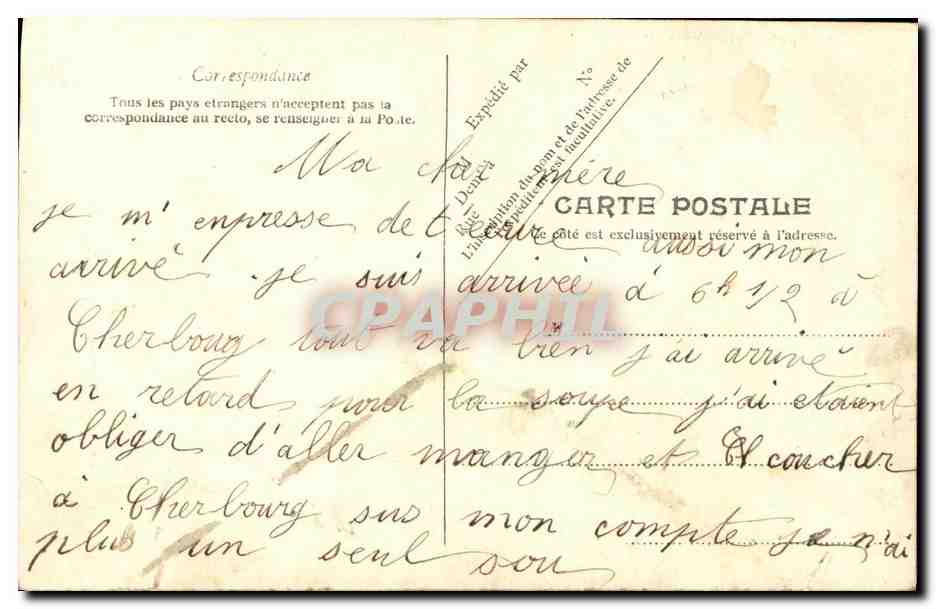 Correspondance
Tous les pays etrangers n'acceptent pas la
correspondance au recto, se renseigner à la Poste.
Expédié par
M
Demt à
Rue
N°
L'inscription du nom et de l'adresse de
l'expéditeur est facultative.
CARTE POSTALE
Ce côté est exclusivement réservé à l'adresse.
Ma cher mére
je m'enpresse de t'ecrire aussi mon
arrivé. je suis arrivée à 6h 1/2 à
Cherboug tout va bien j'ai arrivé
en retard pour la soupe j'ai etaient
obliger d'aller manger et coucher
à Cherbourg sus mon compte je n'ai
plus un seul sou
CPAPHIL